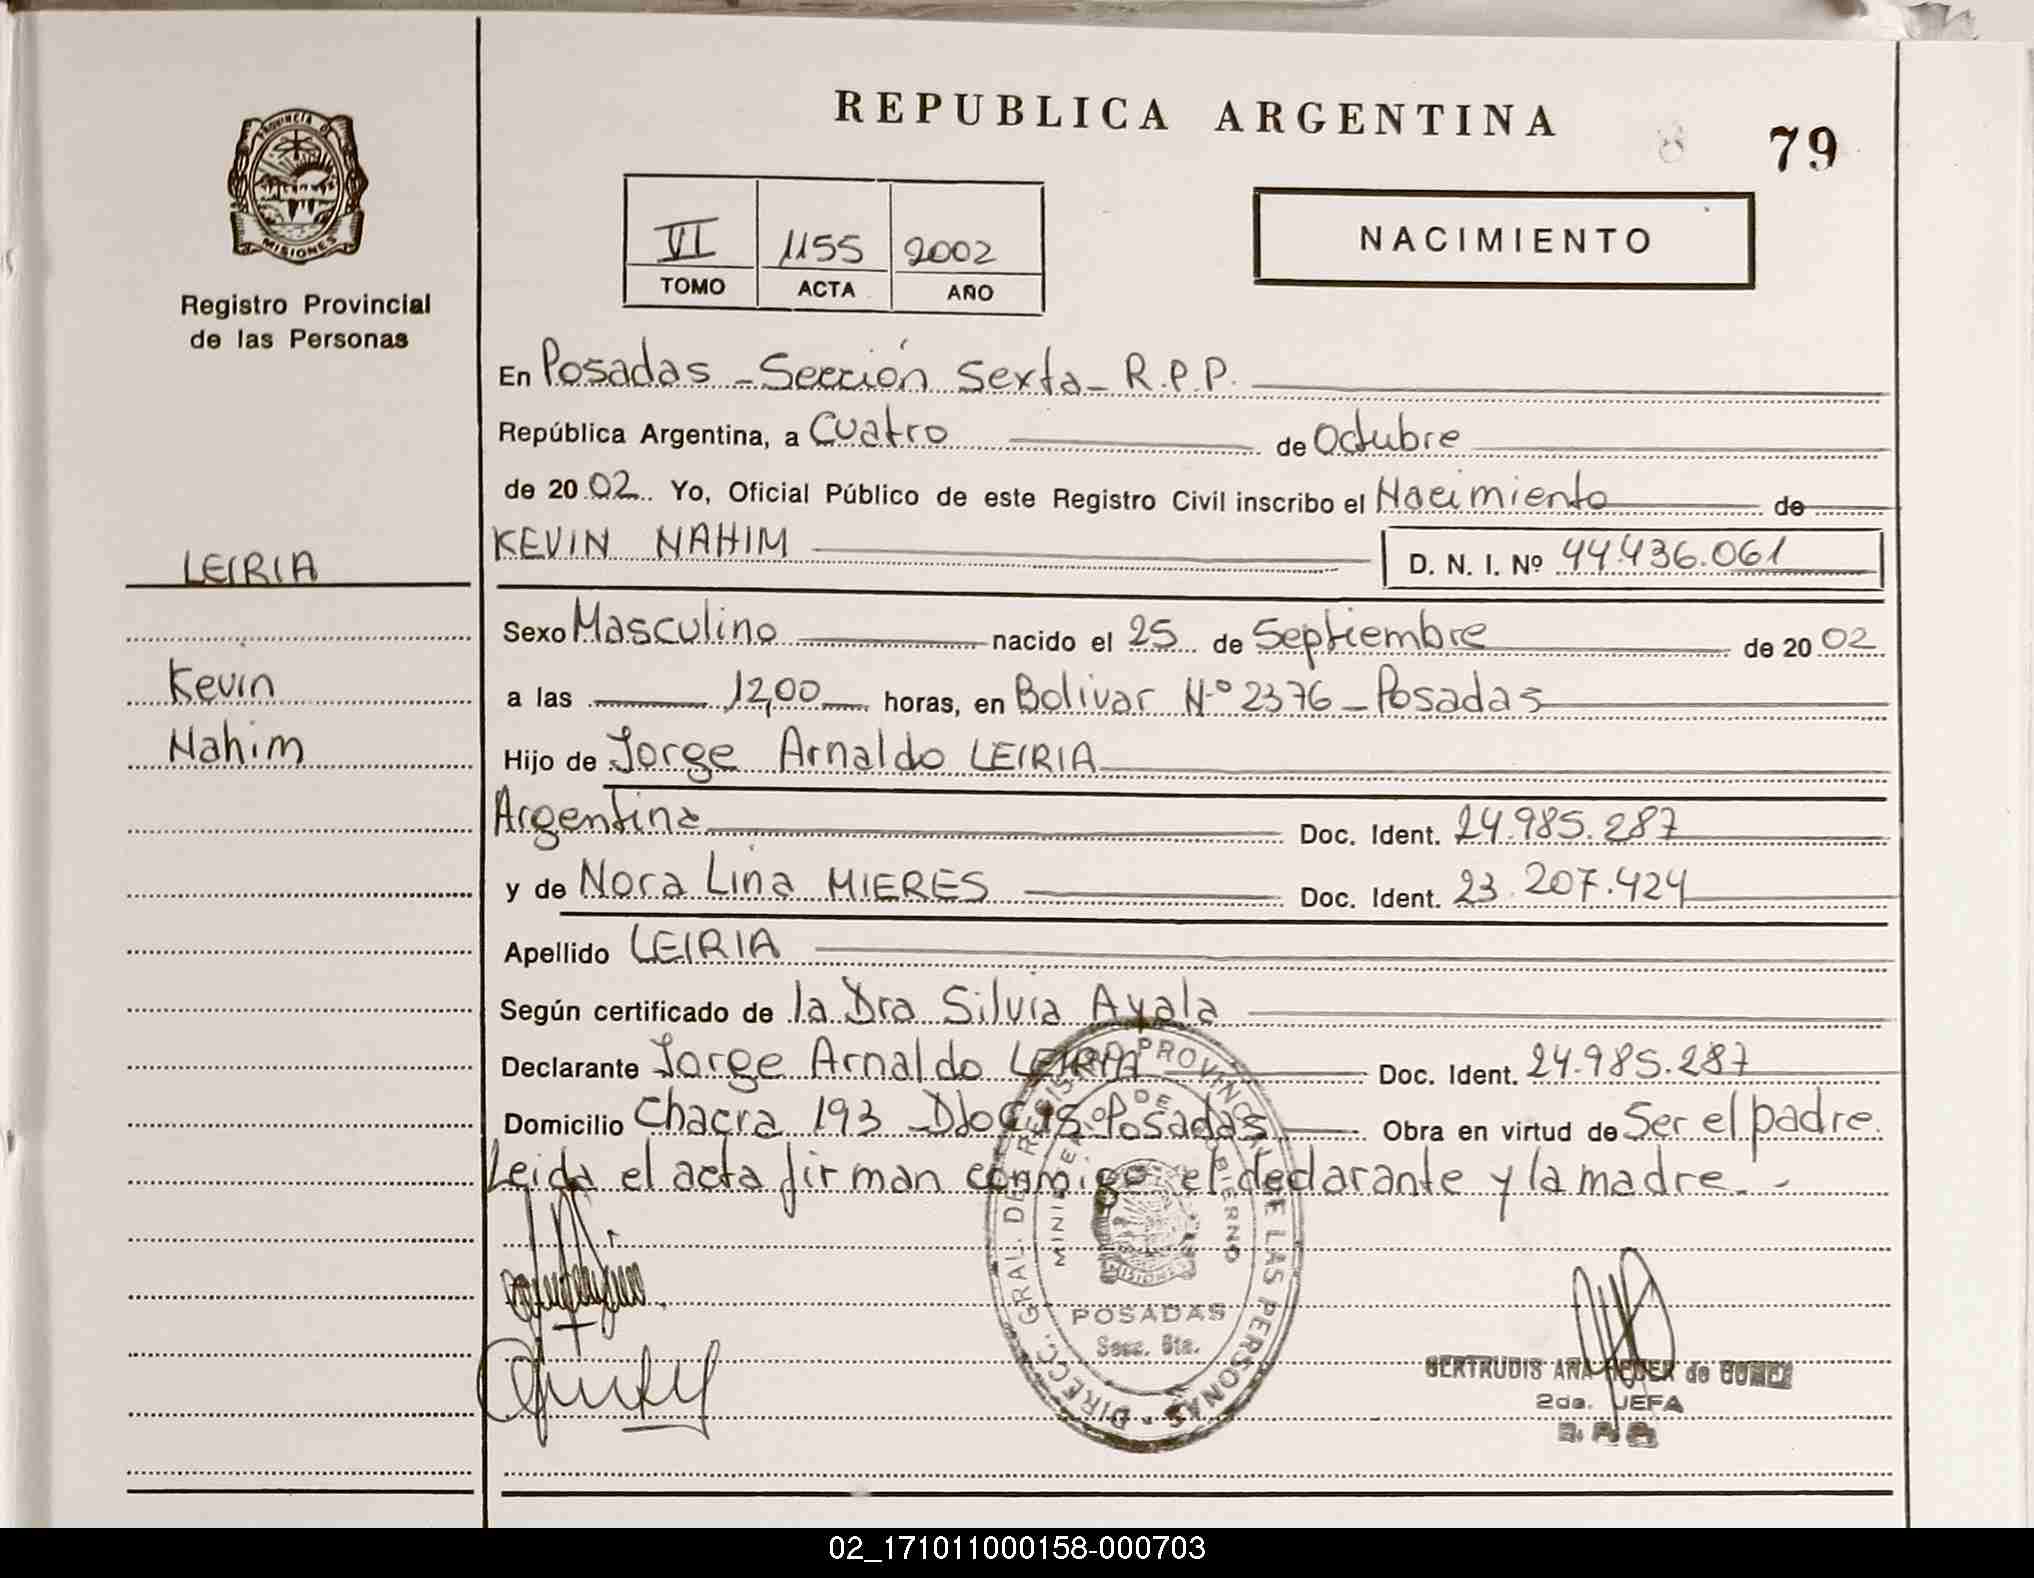 REPUBLICA ARGENTINA
79
PROVINCIA D
MISIONES
Registro Provincial
de las Personas
VI 1155 2002
TOMO ACTA AÑO
NACIMIENTO
En Posadas - Sección Sexta - R.P.P.
República Argentina, a Cuatro de Octubre
de 2002 Yo, Oficial Público de este Registro Civil inscribo el Nacimiento de
LEIRIA
KEVIN NAHIM D. N. I. Nº 44.436.061
Sexo Masculino nacido el 25 de Septiembre de 2002
Kevin
a las 12,00 horas, en Bolivar N.º 2376 - Posadas
Nahim
Hijo de Jorge Arnaldo LEIRIA
Argentina Doc. Ident. 24.985.287
y de Nora Lina MIERES Doc. Ident. 23.207.424
Apellido LEIRIA
Según certificado de la Dra Silvia Ayala
Declarante Jorge Arnaldo LEIRIA Doc. Ident. 24.985.287
Domicilio Chacra 193 Posadas Obra en virtud de Ser el padre.
Leida el acta firman conmigo el declarante y la madre. -
DIRECC. GRAL. DE REGISTRO PROVINCIAL DE LAS PERSONAS
MINISTERIO DE GOBIERNO
MISIONES
POSADAS
Secc. 6ta.
GERTRUDIS ANA de
2da. JEFA
02_171011000158-000703